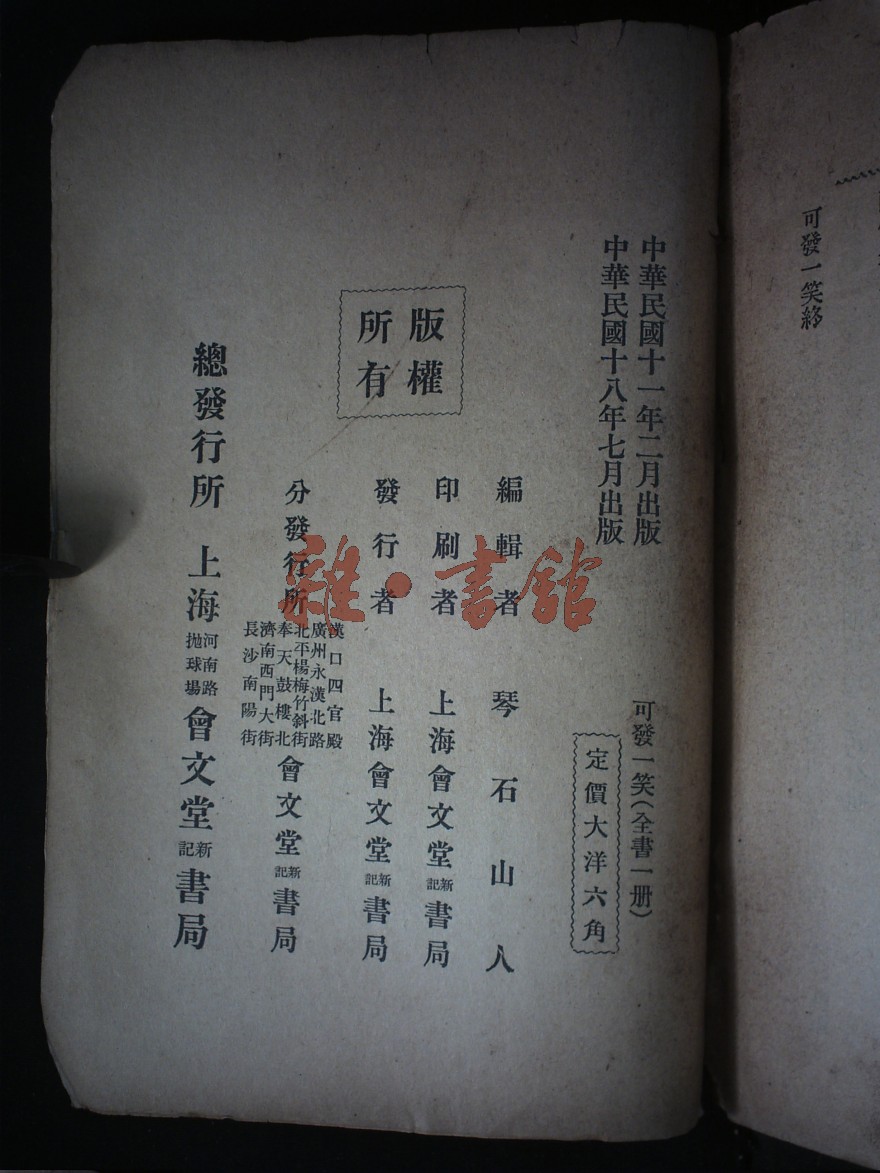 可發一笑終
中華民國十一年二月出版
中華民國十八年七月出版
可發一笑(全書一册)
定價大洋六角
版權
所有
編輯者 琴石山人
印刷者 上海會文堂新記書局
發行者 上海會文堂新記書局
分發行所
漢口四官殿
廣州永漢北路
北平楊梅竹斜街
奉天鼓樓北
濟南西門大街
長沙南陽街
會文堂新記書局
總發行所 上海河南路拋球場會文堂新記書局
雜·書館